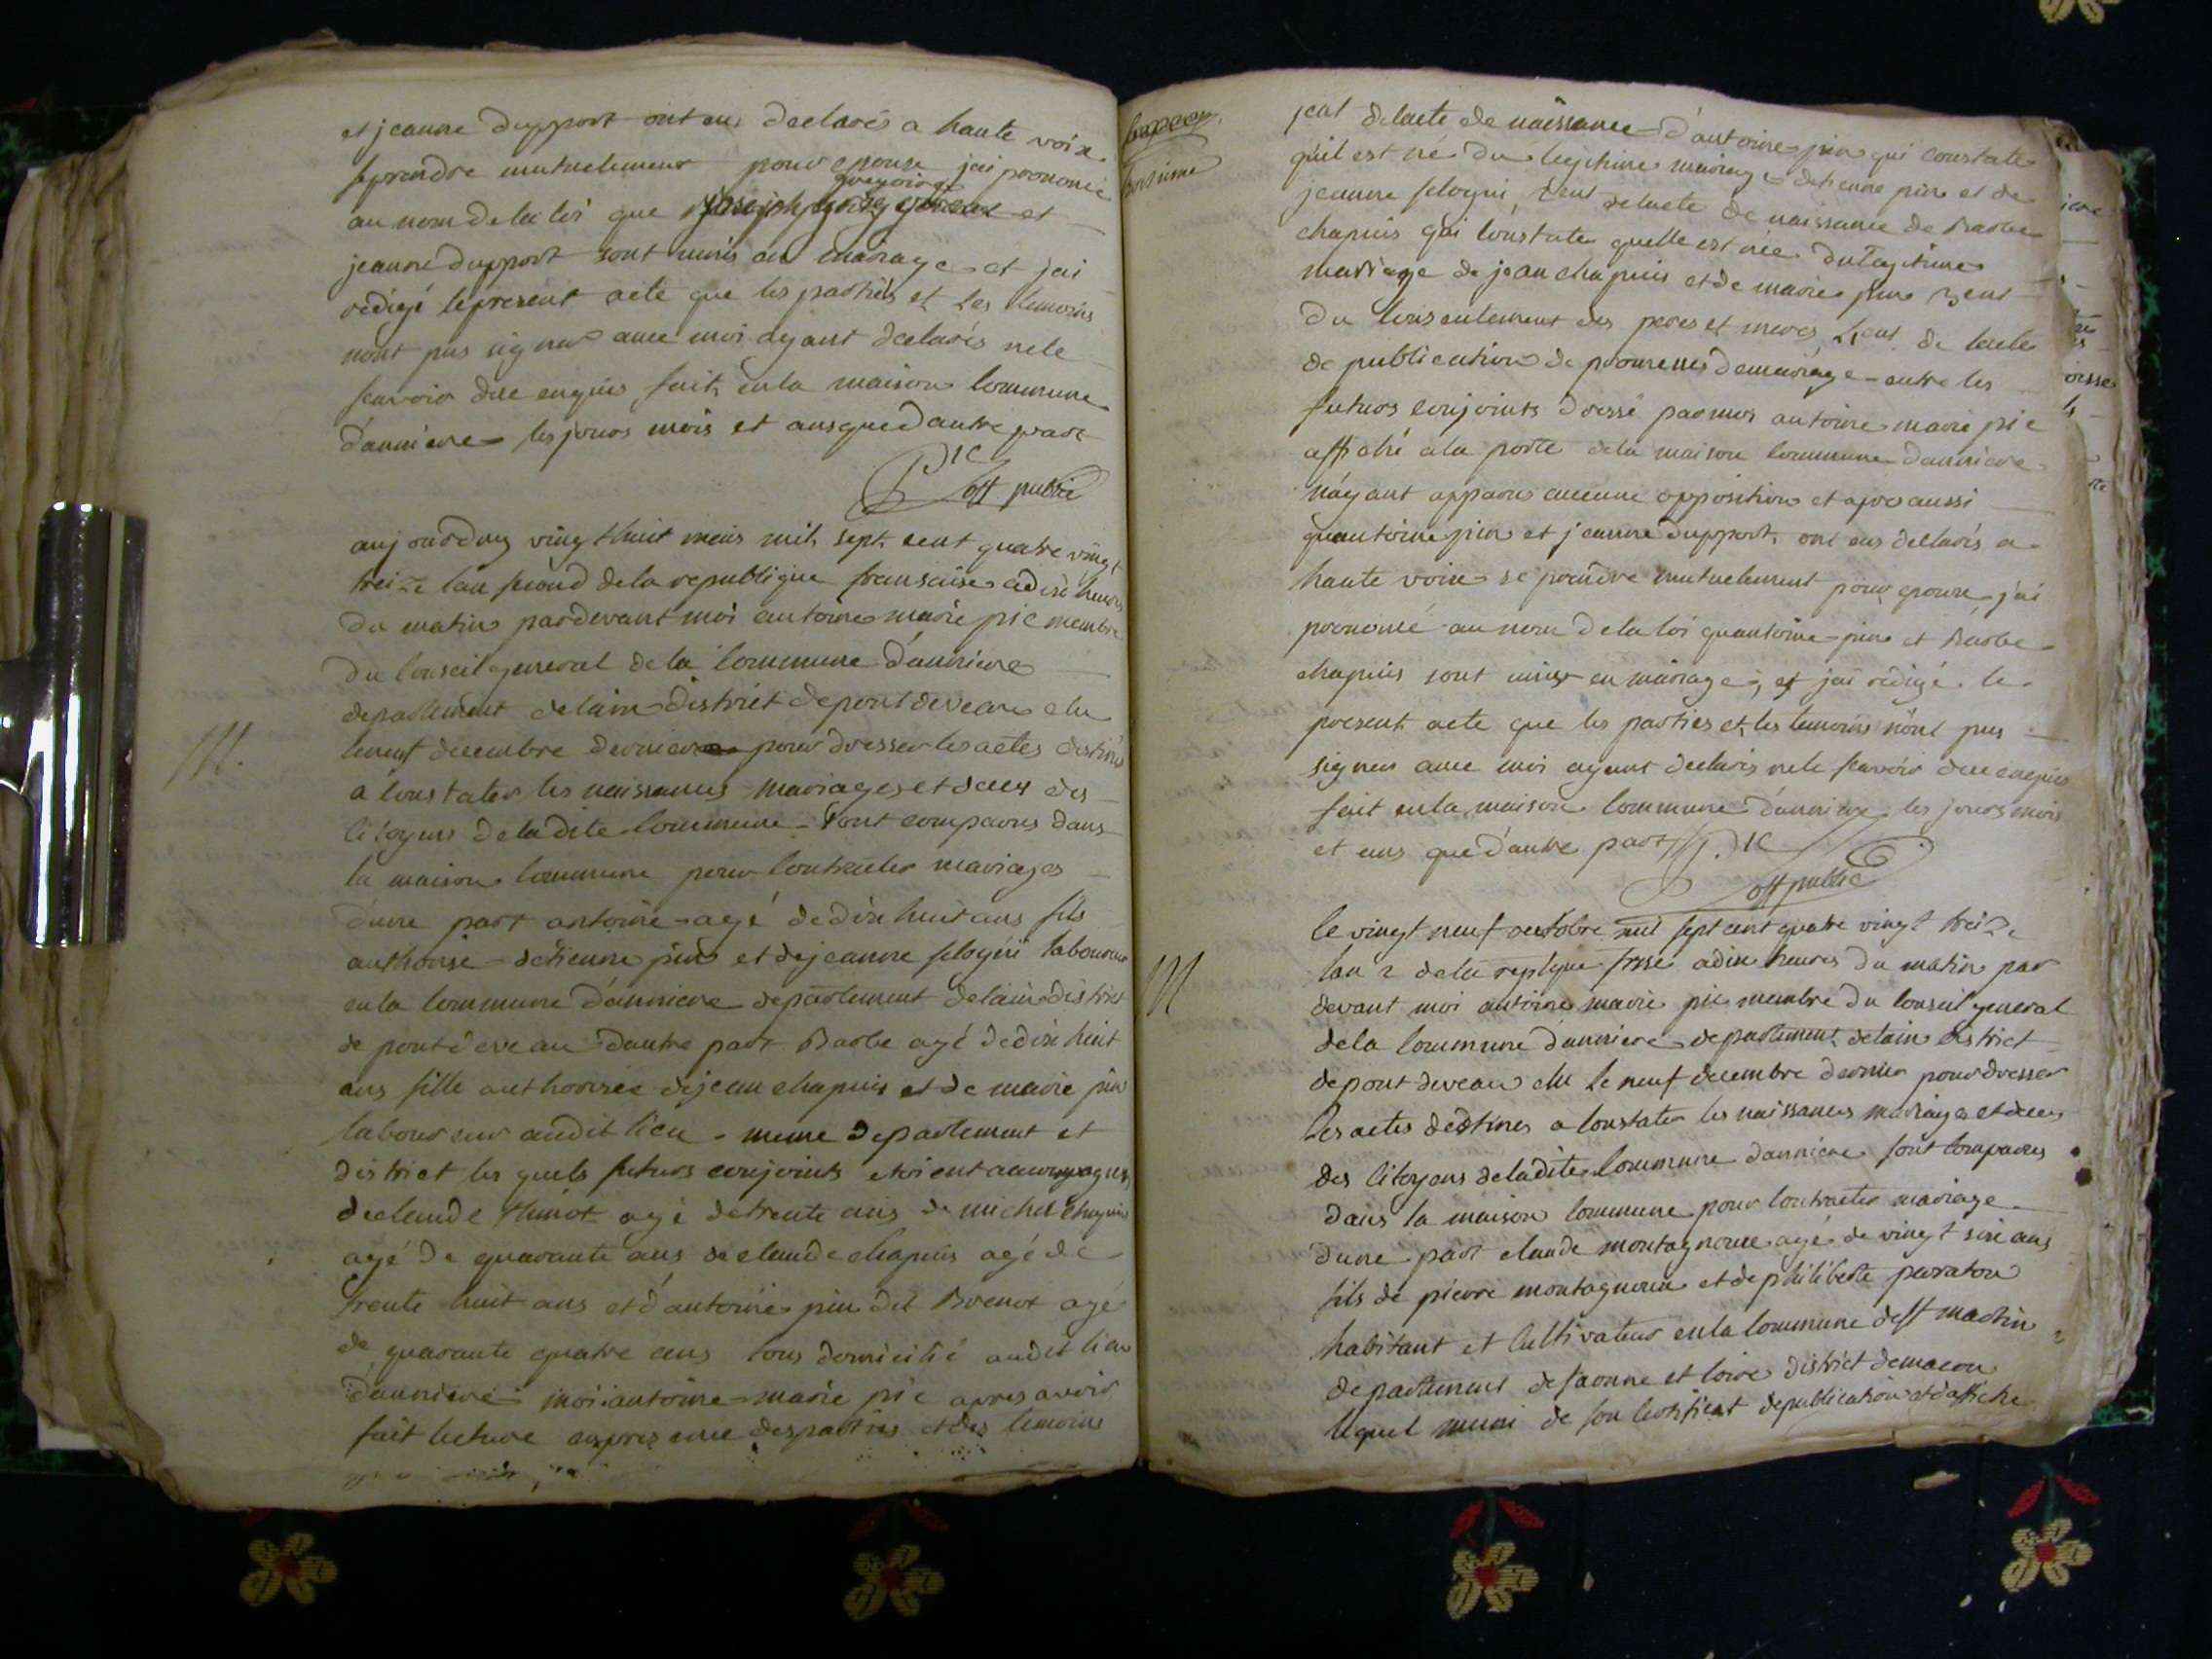 et jeanne dupport ont eu declarés a haute voix
se prendre mutuelement pour epouse jai prononcé
gregoire
au nom de la loi que et
jeanne dupport sont unis en mariage et jai
rédigé le present acte que les partiés et les temoins
nont pas signer avec moi ayant declarés ne le
scavoir dee enquis fait en la maison commune
d'anniere les jours mois et ans que d'autre part
Pic
off public
aujourduy vingt huit mil sept cent quatre vingt
treize lan second de la republique fransaise a dix heures
du matin pardevant moi antoine marie pic membre
du conseil general de la commune d'anniere
departement de lain district de pont deveau elu
le neuf decembre dernier pour dresser les actes destinés
M.
a constater les naissances mariages et deces des
citoyens de ladite commune sont comparus dans
la maison commune pour contracter mariages
d'une part antoine agé de dix huit ans fils
authorisé détienne pin et de jeanne laboureur
en la commune d'anniere departement de lain district
de pont de veau d'autre part Barbe agé de dix huit
ans fille authorisée de jean chapuis et de marie pin
laboureur audit lieu meme departement et
district les quels futurs conjoints etoient accompagnés
de claude agé de trente ans de michel chapuis
agé de quarante ans de claude chapuis agé de
trente huit ans et d'antoine pin dit Brenot agé
de quarante quatre ans tous domicilié audit lieu
d'anniere moi antoine marie pic apres avoir
fait lecture en presence des parties et des temoins
jeal delacte de naissance d'antoine pin qui constate
qu'il est né du legitime mariage detienne pin et de
jeanne de lacte de naissance de Barbe
chapuis qui constate quelle est née du legitime
mariage de jean chapuis et de marie pin
du consentement des peres et meres de lacte
de publication de promesses de mariage entre les
futurs conjoints dressé par moi antoine marie pic
affiché a la porte de la maison commune d'anniere
n'ayant apparu aucune opposition et apres aussi
quantoine pin et jeanne dupport ont eus declarés a
haute voix se prendre mutuelement pour epouse jai
prononcé au nom de la loi quantoine pin et Barbe
chapuis sont unis en mariage, et jai rédigé le
present acte que les parties et les temoins nont pas
signer avec moi ayant declarés ne le scavoir dee enquis
fait en la maison commune d'anniere les jours mois
et ans que d'autre part Pic
off public
le vingt neuf octobre mil sept cent quatre vingt treize
lan 2 de la repuque frsse a dix heures du matin par
M
devant moi antoine marie pic membre du conseil general
de la commune d'anniere departement de lain district
de pont deveau elu le neuf decembre dernier pour dresser
les actes destines a constater les naissances mariages et deces
des citoyens de ladite commune danniere sont comparus
dans la maison commune pour contracter mariage
d'une part claude montagnoux agé de vingt six ans
fils de pierre montagnoux et de philiberte
habitant et cultivateur en la commune de st martin
departement de saonne et loire district de macon
lequel muni de son certificat de publication et d'affiche